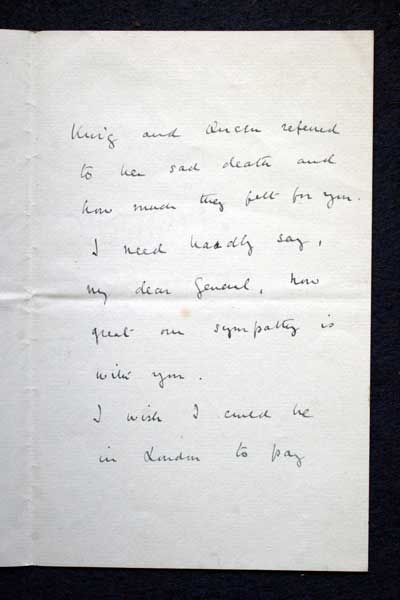 King and Queen referred
to her sad death and
how much they felt for you.
I need hardly say,
my dear General, how
great our sympathy is
with you.
I wish I could be
in London to pay